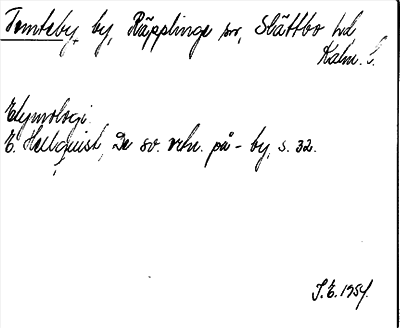 Tomteby, by, Räpplinge sn, Slättbo hd
Kalm. l.
Etymologi.
E. Hellquist, De sv. ortn. på -by, s. 32.
S.E. 1954.